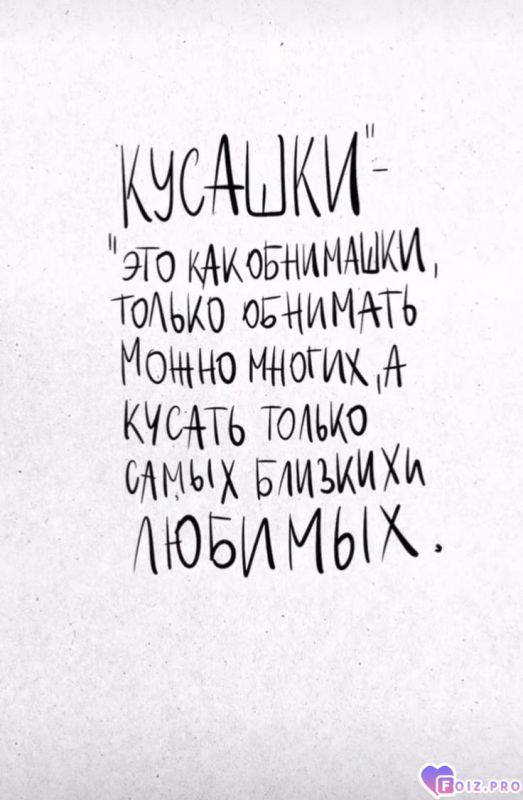 КУСАШКИ"-
"ЭТО КАК ОБНИМАШКИ,
ТОЛЬКО ОБНИМАТЬ
МОЖНО МНОГИХ, А
КУСАТЬ ТОЛЬКО
САМЫХ БЛИЗКИХ И
ЛЮБИМЫХ.
FOIZ.PRO